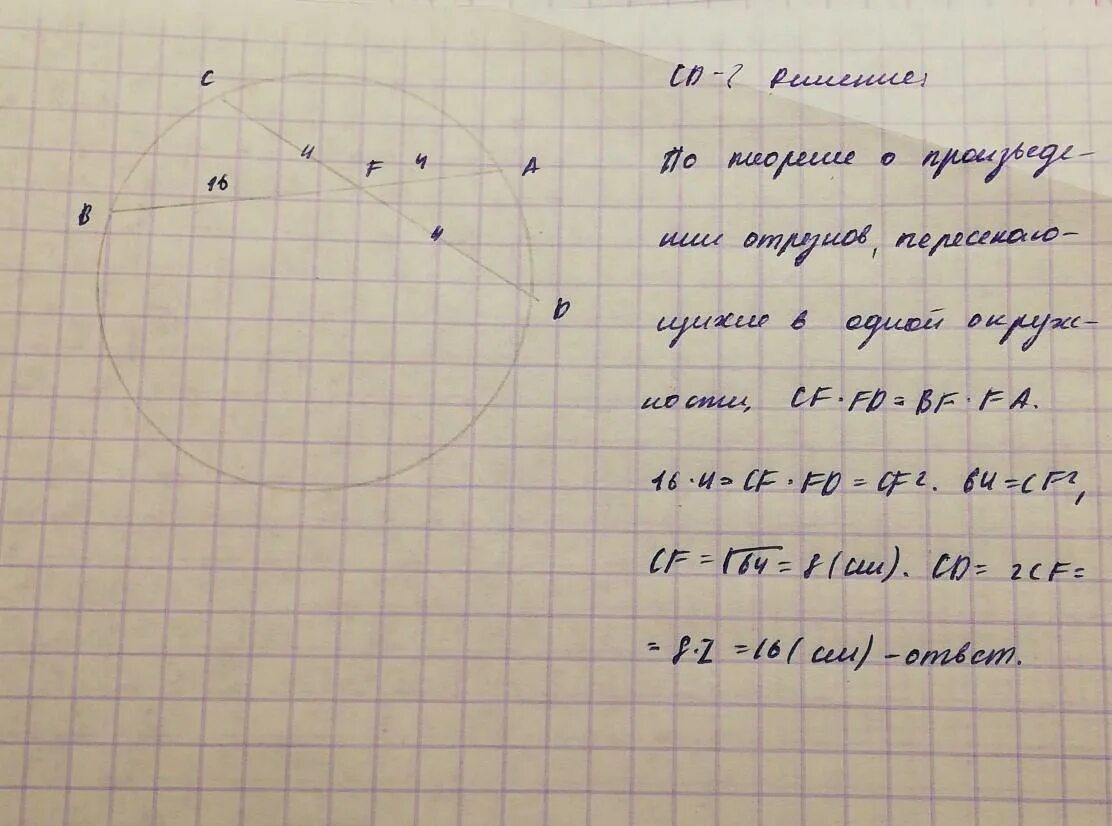 C
F 4 A
16
B
D
CD-? Решение:
По теореме о произведе-
нии отрезков, пересекаю-
щихся в одной окруж-
ности, CF·FD=BF·FA.
16·4=CF·FD=CF². 64=CF²,
CF=√64=8(см). CD=2CF=
=8·2=16(см)-ответ.